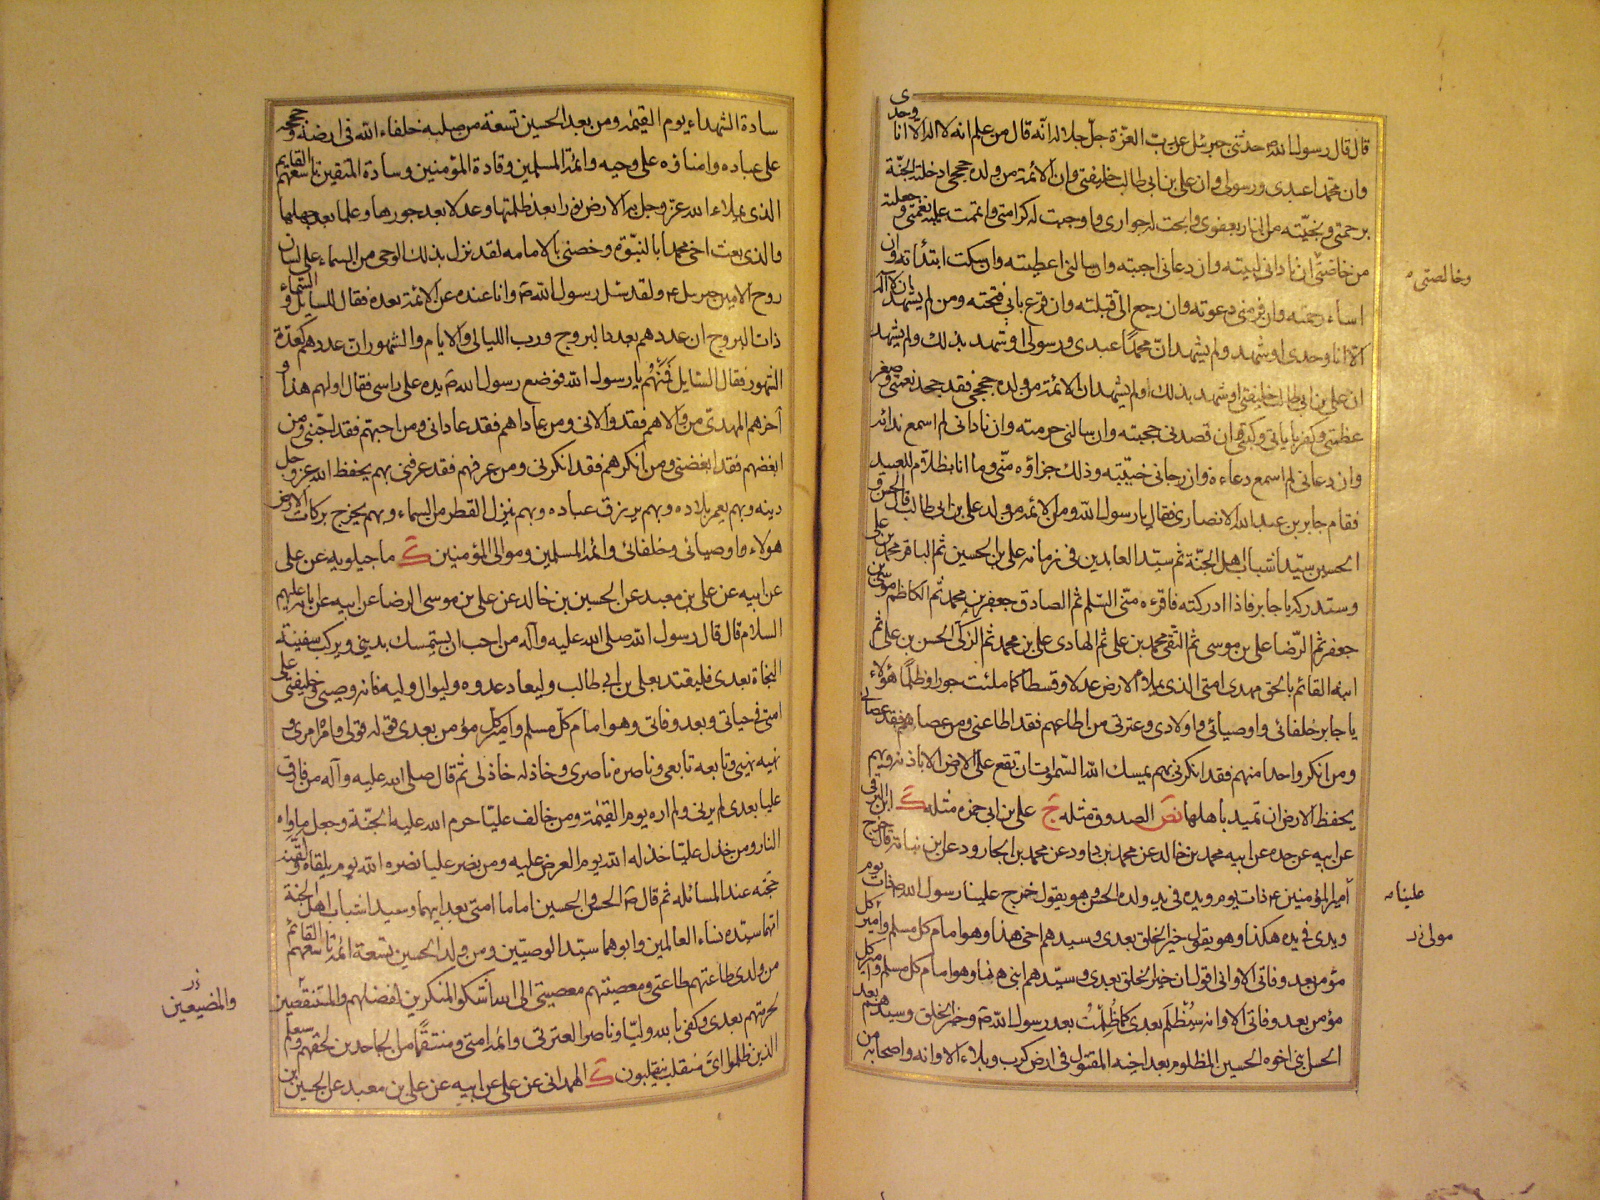 قال قال رسول الله ص حدثنى جبرئيل عن رب العزّة جلّ جلاله انّه قال من علم انه لا اله الّا انا وحدى
وان محمدا عبدى ورسولى وان على بن ابى طالب خليفتى وان الائمة من ولده حججى ادخلته الجنّة
برحمتى ونجّيته من النار بعفوى وابحت له جوارى واوجبت له كرامتى واتممت عليه نعمتى وجعلته
من خاصّتى ان نادانى لبّيته وان دعانى اجبته وان سألنى اعطيته وان سكت ابتدأته وان
وخالصتى
اساء رحمته وان فرّ منى دعوته وان رجع الىّ قبلته وان قرع بابى فتحته ومن لم يشهد ان لا اله
الا انا وحدى او شهد ولم يشهد انّ محمدًا عبدى ورسولى او شهد بذلك ولم يشهد
ان على بن ابى طالب خليفتى او شهد بذلك ولم يشهد ان الائمة من ولده حججى فقد جحد نعمتى وصغر
عظمتى وكفر باياتى وكتبى ان قصدنى حجبته وان سالنى حرمته وان نادانى لم اسمع نداءه
وان دعانى لم اسمع دعاءه وان رجانى خيّبته وذلك جزاؤه منّى وما انا بظلّام للعبيد
فقام جابر بن عبد الله الانصارى فقال يا رسول الله ومن الائمة من ولد على بن ابى طالب قال الحسن و
الحسين سيّدا شباب اهل الجنّة ثم سيّد العابدين فى زمانه على بن الحسين ثم الباقر محمد بن على
وستدركه يا جابر فاذا ادركته فاقرءه منّى السّلم ثم الصادق جعفر بن محمد ثم الكاظم موسى بن
جعفر ثم الرّضا على بن موسى ثم التقى محمد بن على ثم الهادى على بن محمد ثم الزكى الحسن بن على ثم
ابنه القائم بالحق مهدى امتى الذى يملأ الارض عدلا وقسطا كما ملئت جورا وظلمًا هؤلاء
يا جابر خلفائى واوصيائى واولادى وعترتى من اطاعهم فقد اطاعنى ومن عصاهم فقد عصانى
ومن انكر واحدا منهم فقد انكرنى بهم يمسك الله السموات ان تقع على الارض الا باذنه وبهم
يحفظ الارض ان تميد باهلها نص الصدوق مثله ج على بن ابى حمزه مثله ك ابن البرقى
عن ابيه عن جده عن ابيه محمد بن خالد عن محمد بن داود عن محمد بن الجارود عن ابن نباته قال خرج
امير المؤمنين ع ذات يوم ويده فى يد ولده الحسن وهو يقول خرج علينا رسول الله ص ذات يوم
علينا
ويدى فى يده هكذا وهو يقول خير الخلق بعدى وسيدهم اخى هذا وهو امام كل مسلم وامير كل
مولى
مؤمن بعد وفاتى الا وانى اقول ان خير الخلق بعدى وسيّدهم ابنى هذا وهو امام كل مسلم وامير كل
مؤمن بعد وفاتى الا وانه سيُظلم بعدى كما ظُلمت بعد رسول الله ص وخير الخلق وسيدهم بعد
الحسن ابنى اخوه الحسين المظلوم بعد اخيه المقتول فى ارض كرب وبلاء الا وانه واصحابه من
سادة الشهداء يوم القيمة ومن بعد الحسين تسعة من صلبه خلفاء الله فى ارضه وحججه
على عباده وامناؤه على وحيه وائمة المسلمين وقادة المؤمنين وسادة المتقين تاسعهم القايم
الذى يملاء الله عز وجل به الارض نورا بعد ظلمتها وعدلا بعد جورها وعلما بعد جهلها
والذى بعث اخى محمدا بالنبوّة وخصنى بالامامه لقد نزل بذلك الوحى من السماء على لسان
روح الامين جبرئيل ع ولقد سئل رسول الله ص وانا عنده عن الائمة بعده فقال للسايل والسماء
ذات البروج ان عددهم بعدد البروج ورب الليالى والايام والشهور ان عددهم كعدّة
الشهور فقال السّايل فمنهم يا رسول الله فوضع رسول الله ص يده على راسى فقال اولهم هذا و
آخرهم المهدىّ من والاهم فقد والانى ومن عاداهم فقد عادانى ومن احبهم فقد احبّنى ومن
ابغضهم فقد ابغضنى ومن انكرهم فقد انكرنى ومن عرفهم فقد عرفنى بهم يحفظ الله عز وجل
دينه وبهم يعمر بلاده وبهم يرزق عباده وبهم ينزل القطر من السماء وبهم يخرج بركات الارض
هولاء اوصيائى وخلفائى وائمة المسلمين وموالى المؤمنين ك ماجيلويه عن على
عن ابيه عن على بن معبد عن الحسين بن خالد عن على بن موسى الرضا عن ابيه عن آبائه عليهم
السلام قال قال رسول الله صلى الله عليه وآله من احب ان يستمسك بدينى ويركب سفينة
النجاة بعدى فليقتد بعلى بن ابى طالب وليعاد عدوه وليوال وليه فانه وصيى وخليفتى على
امتى فى حياتى وبعد وفاتى وهو امام كلّ مسلم وامير كلّ مؤمن بعدى قوله قولى وامره امرى و
نهيه نهيى وتابعه تابعى وناصره ناصرى وخاذله خاذلى ثم قال صلى الله عليه وآله من فارق
عليا بعدى لم يرنى ولم اره يوم القيمة ومن خالف عليّا حرم الله عليه الجنّة وجعل ماواه
النار ومن خذل عليّا خذله الله يوم العرض عليه ومن نصر عليا نصره الله يوم يلقاه ولقّنه
حجّته عند المسائله ثم قال ص الحسن والحسين اماما امتى بعد ابيهما وسيدا شباب اهل الجنة
امّهما سيّدة نساء العالمين وابوهما سيّد الوصيّين ومن ولد الحسين تسعة ائمة تاسعهم القائم
من ولدى طاعتهم طاعتى ومعصيتهم معصيتى الى الله اشكو المنكرين لفضلهم والمتنقّصين
والمضيعين
لحرمتهم بعدى وكفى بالله وليّا وناصرا لعترتى وائمة امتى ومنتقمًا من الجاحدين لحقهم وسيعلم
الذين ظلموا اىّ منقلب ينقلبون ك الهمدانى عن على عن ابيه عن على بن معبد عن الحسين بن